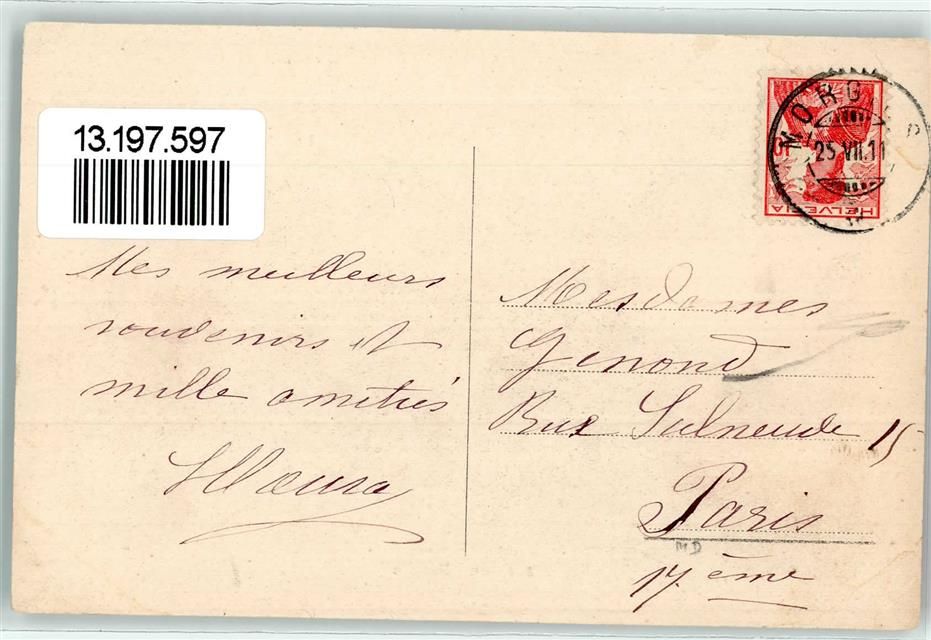 13.197.597
HELVETIA
10
MORG
25.VII.11
Mes meilleurs
souvenirs et
mille amitiés
Mesdames
Genoud
Rue 15
Paris
MD
17. ème